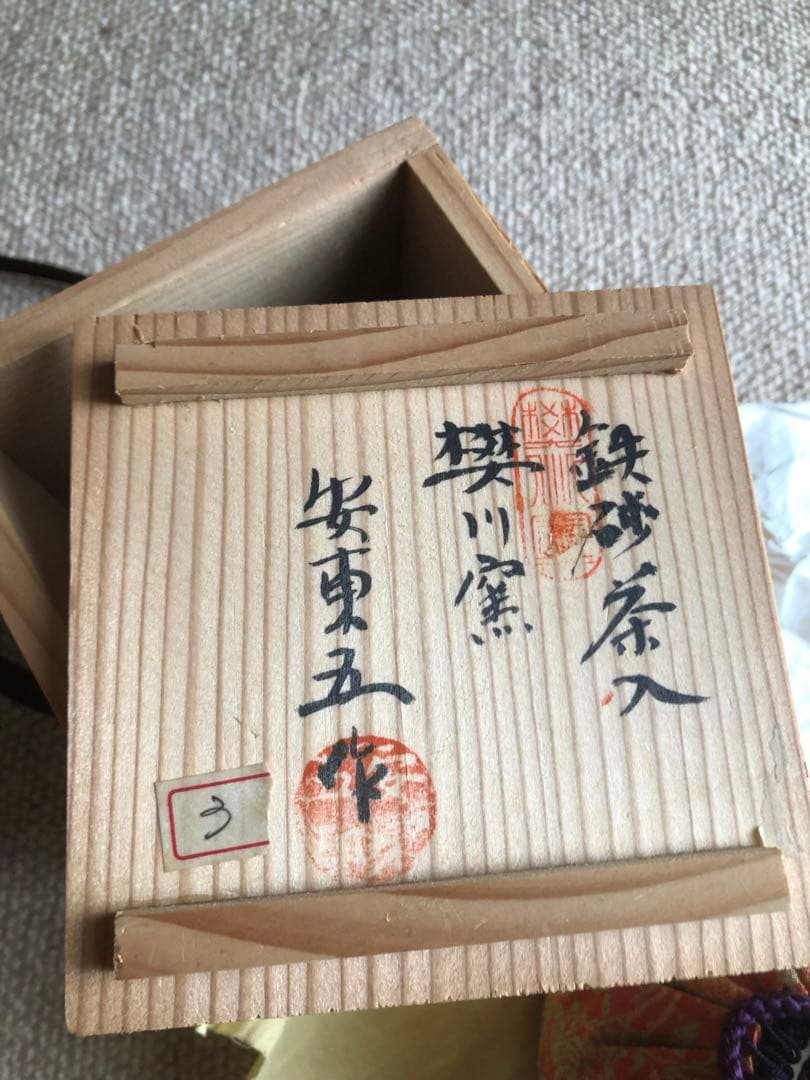 鉄砂茶入
樊川窯
安東五作
う